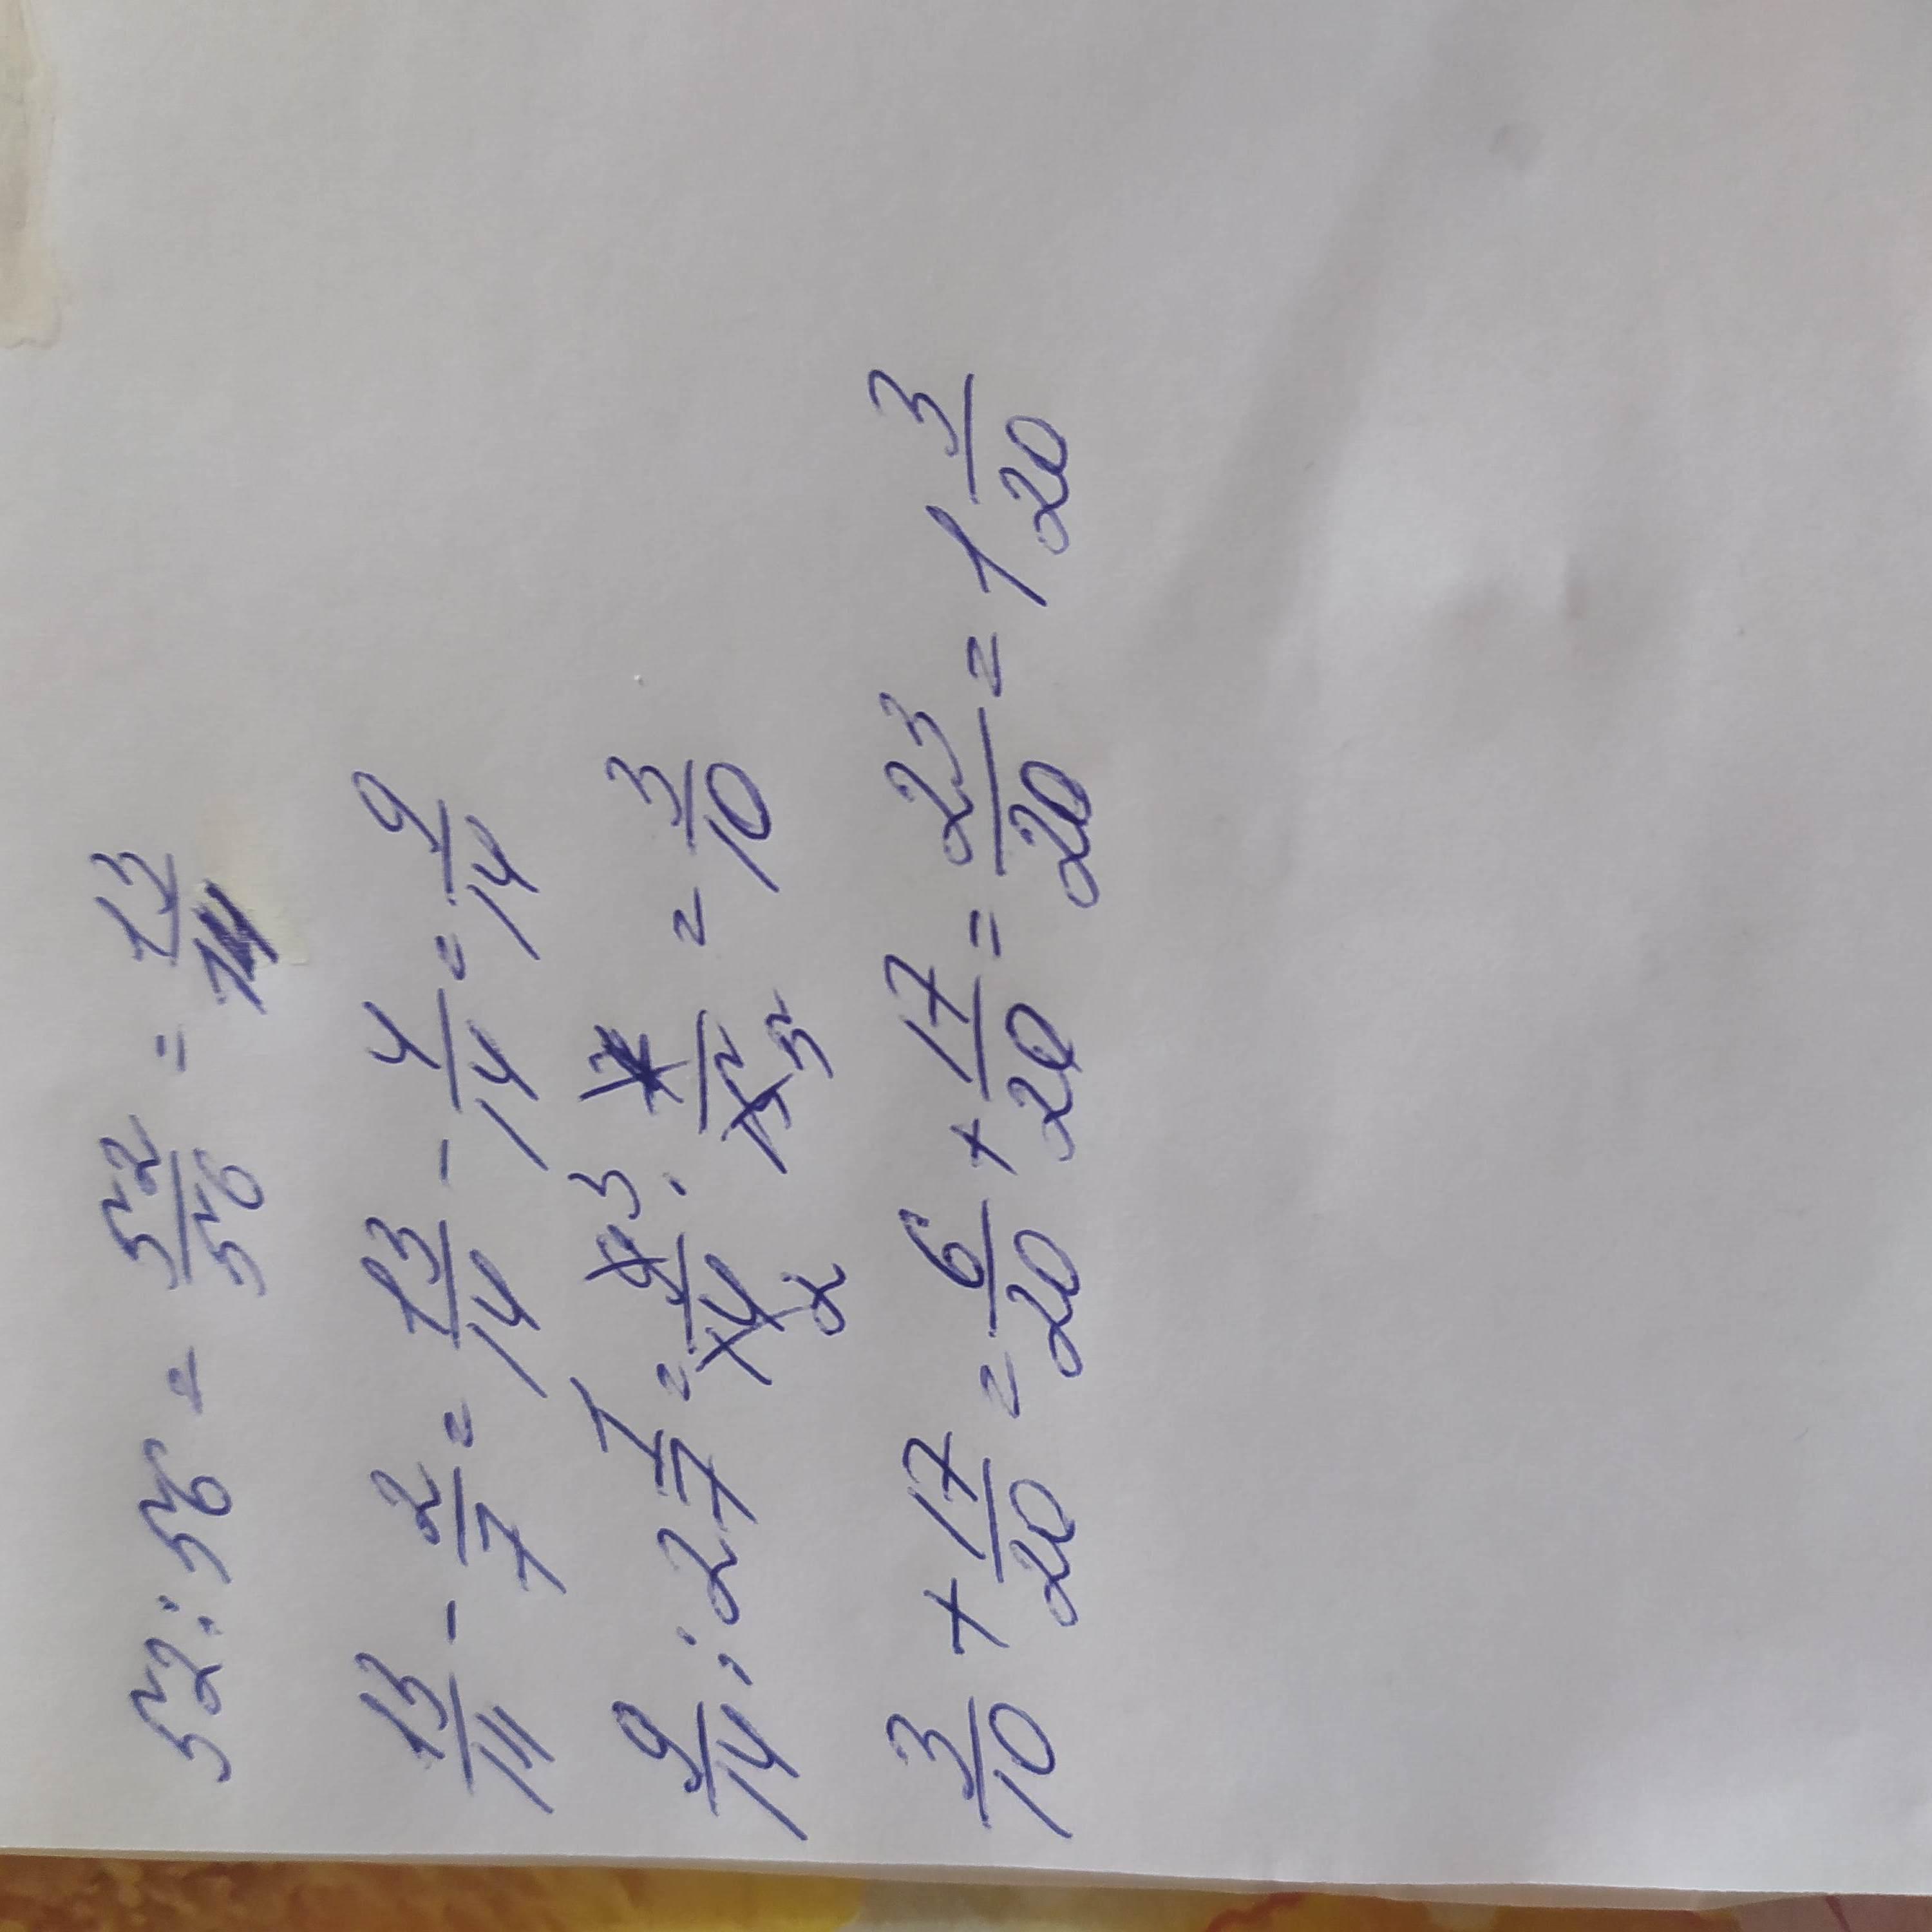 52 : 56 = 52/56 = 13/14
13/14 - 2/7 = 13/14 - 4/14 = 9/14
9/14 : 2 1/7 = 9 3/14 2 · 7/15 5 = 3/10
3/10 + 17/20 = 6/20 + 17/20 = 23/20 = 1 3/20